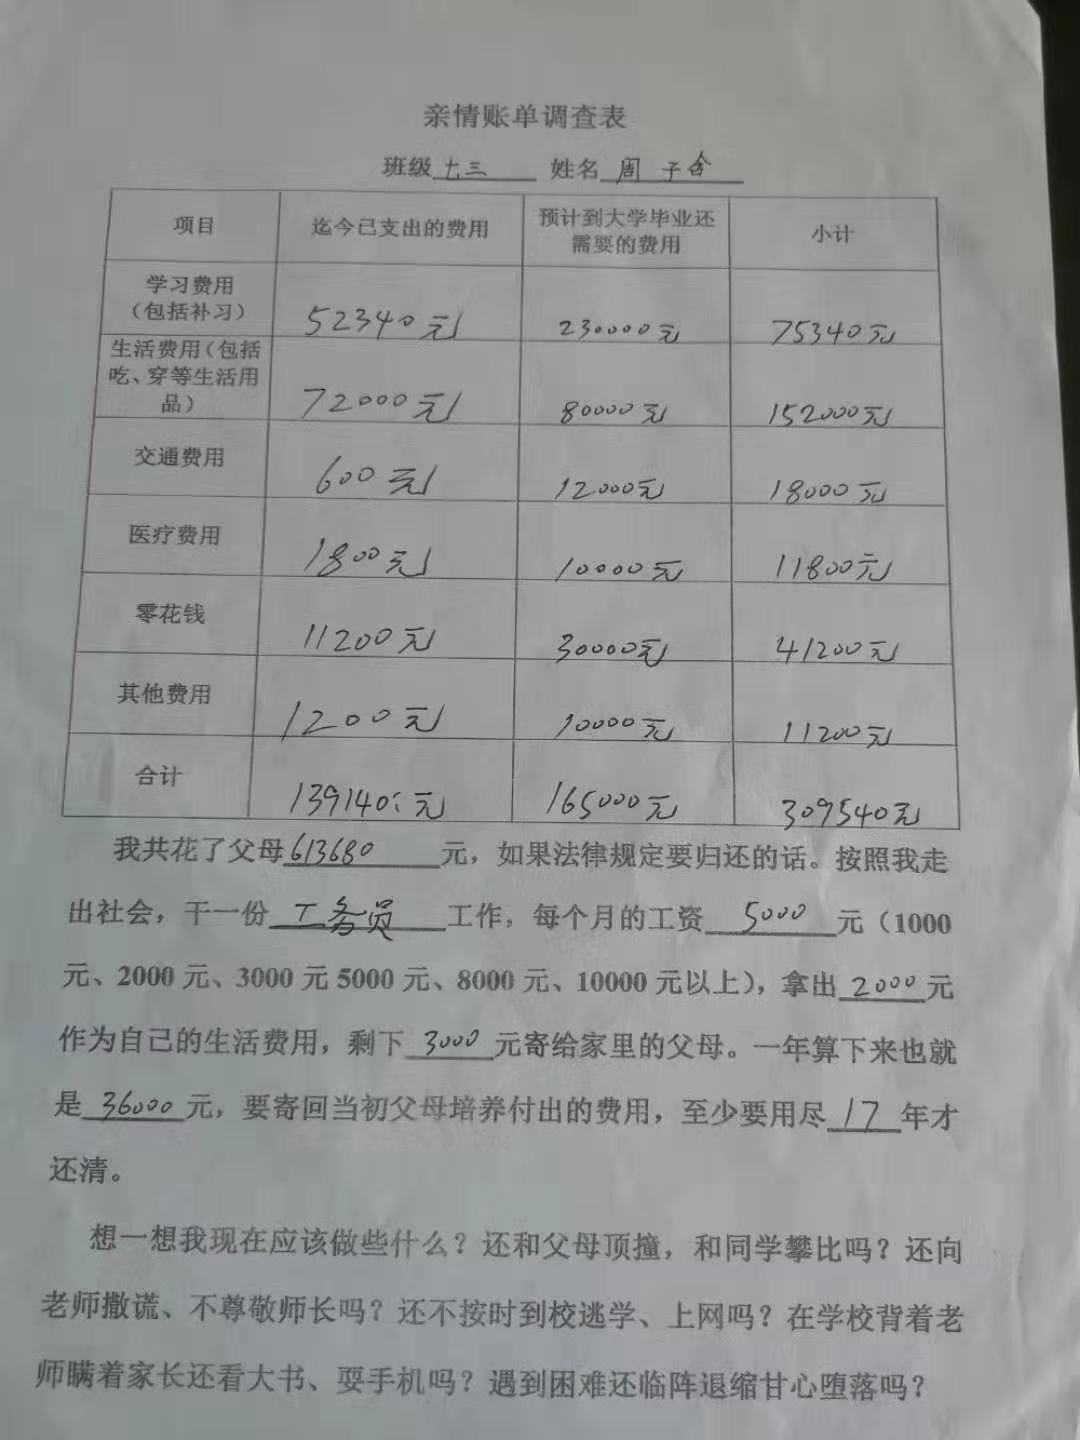 亲情账单调查表
班级 七三 姓名 周子含
项目 迄今已支出的费用 预计到大学毕业还需要的费用 小计
学习费用（包括补习） 52340元 230000元 75340元
生活费用（包括吃、穿等生活用品） 72000元 80000元 152000元
交通费用 600元 12000元 18000元
医疗费用 1800元 10000元 11800元
零花钱 11200元 30000元 41200元
其他费用 1200元 10000元 11200元
合计 139140元 165000元 309540元
我共花了父母613680元，如果法律规定要归还的话。按照我走
出社会，干一份 工务员 工作，每个月的工资 5000 元（1000
元、2000 元、3000 元 5000 元、8000 元、10000 元以上），拿出 2000 元
作为自己的生活费用，剩下 3000 元寄给家里的父母。一年算下来也就
是 36000 元，要寄回当初父母培养付出的费用，至少要用尽 17 年才
还清。
想一想我现在应该做些什么？还和父母顶撞，和同学攀比吗？还向
老师撒谎、不尊敬师长吗？还不按时到校逃学、上网吗？在学校背着老
师瞒着家长还看大书、耍手机吗？遇到困难还临阵退缩甘心堕落吗？